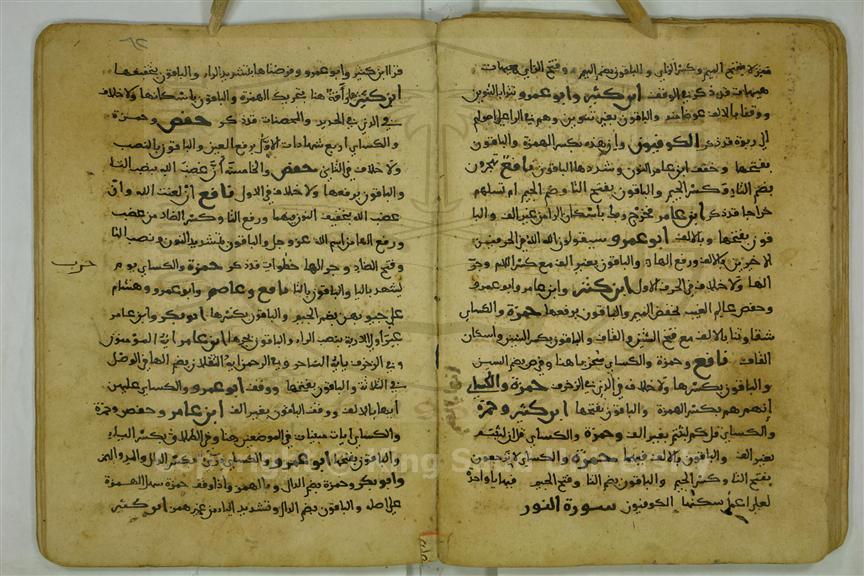 منزلا بفتح الميم وكسر الزاي والباقون بضم الميم وفتح الزاي هيهات
هيهات قد ذكر في الوقف ابن كثير وابو عمرو تترا بالتنوين
ووقفا بالالف عوضا منه والباقون بغير تنوين وهم في الراء على اصولهم
الى ربوة قد ذكر الكوفيون وان هذه بكسر الهمزة والباقون
بفتحها وخفف ابن عامر النون وشددها الباقون نافع تهجرون
بضم التاء وكسر الجيم والباقون بفتح التاء وضم الجيم ام تسلهم
خراجا قد ذكر ابن عامر فخرج ربك باسكان الراء من غير الف والبا
قون بفتحها وبالالف ابو عمرو سيقولون الله الله في الحرفين
الاخيرين بالالف ورفع الهاء والباقون بغير الف مع كسر اللام وجر
الهاء ولا خلاف في الحرف الاول ابن كثير وابن عامر وابو عمرو
وحفص عالم الغيب بخفض الميم والباقون برفعها حمزة والكسائي
شقاوتنا بالالف مع فتح الشين والقاف والباقون بكسر الشين واسكان
القاف نافع وحمزة والكسائي سخريا هنا وفي ص بضم السين
والباقون بكسرها ولا خلاف في الذي في الزخرف حمزة والكسائي
انهم هم بكسر الهمزة والباقون بفتحها ابن كثير وحمزة
والكسائي قل كم لبثتم بغير الف وحمزة والكسائي قل ان لبثتم
بغير الف والباقون بالالف فيهما حمزة والكسائي لا ترجعون
بفتح التا وكسر الجيم والباقون بضم التا وفتح الجيم فيها ياء واحدة
لعلى اعمل سكنها الكوفيون سورة النور
قرا ابن كثير وابو عمرو وفرضناها بتشديد الراء والباقون بتخفيفها
ابن كثير رأفة هنا بتحريك الهمزة والباقون باسكانها ولا خلاف
في الذي في الحديد والمحصنات قد ذكر حفص وحمزة
والكسائي اربع شهادات الاول برفع العين والباقون بالنصب
ولا خلاف في الثاني حفص والخامسة ان غضب الله بنصب التا
والباقون برفعها ولا خلاف في الاول نافع ان لعنت الله وان
غضب الله بتخفيف النون فيهما ورفع التا وكسر الضاد من غضب
ورفع الهاء من اسم الله عز وجل والباقون بتشديد النون ونصب التا
وفتح الضاد وجر الها خطوات قد ذكر حمزة والكسائي يوم
يشهد باليا والباقون بالتا نافع وعاصم وابو عمرو وهشام
على جيوبهن بضم الجيم والباقون بكسرها ابو بكر وابن عامر
غير اولي الاربة بنصب الراء والباقون بجرها ابن عامر ايه المؤمنون
وفي الزخرف يايه الساحر وفي الرحمن ايه الثقلان بضم الها في الوصل
في الثلاثة والباقون بفتحها ووقف ابو عمرو والكسائي عليهن
ايها بالالف ووقف الباقون بغير الف ابن عامر وحفص وحمزة
والكسائي ايات مبينات في الموضعين هنا وفي الطلاق بكسر الياء
والباقون بفتحها ابو عمرو والكسائي دري بكسر الدال والمد والهمز
وابو بكر وحمزة بضم الدال والمد والهمز واذا وقف حمزة سهل الهمزة
على اصله والباقون بضم الدال وتشديد الياء من غير همز ابن كثير
حزب